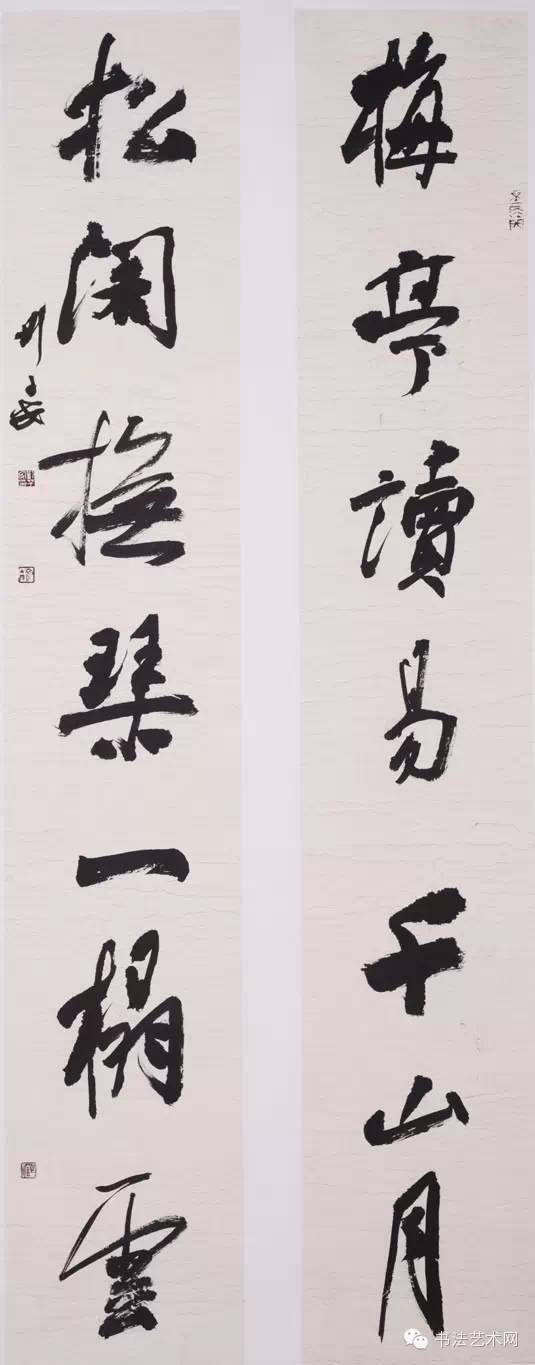 梅亭讀易千山月
松阁撫琴一榻雲
书法艺术网